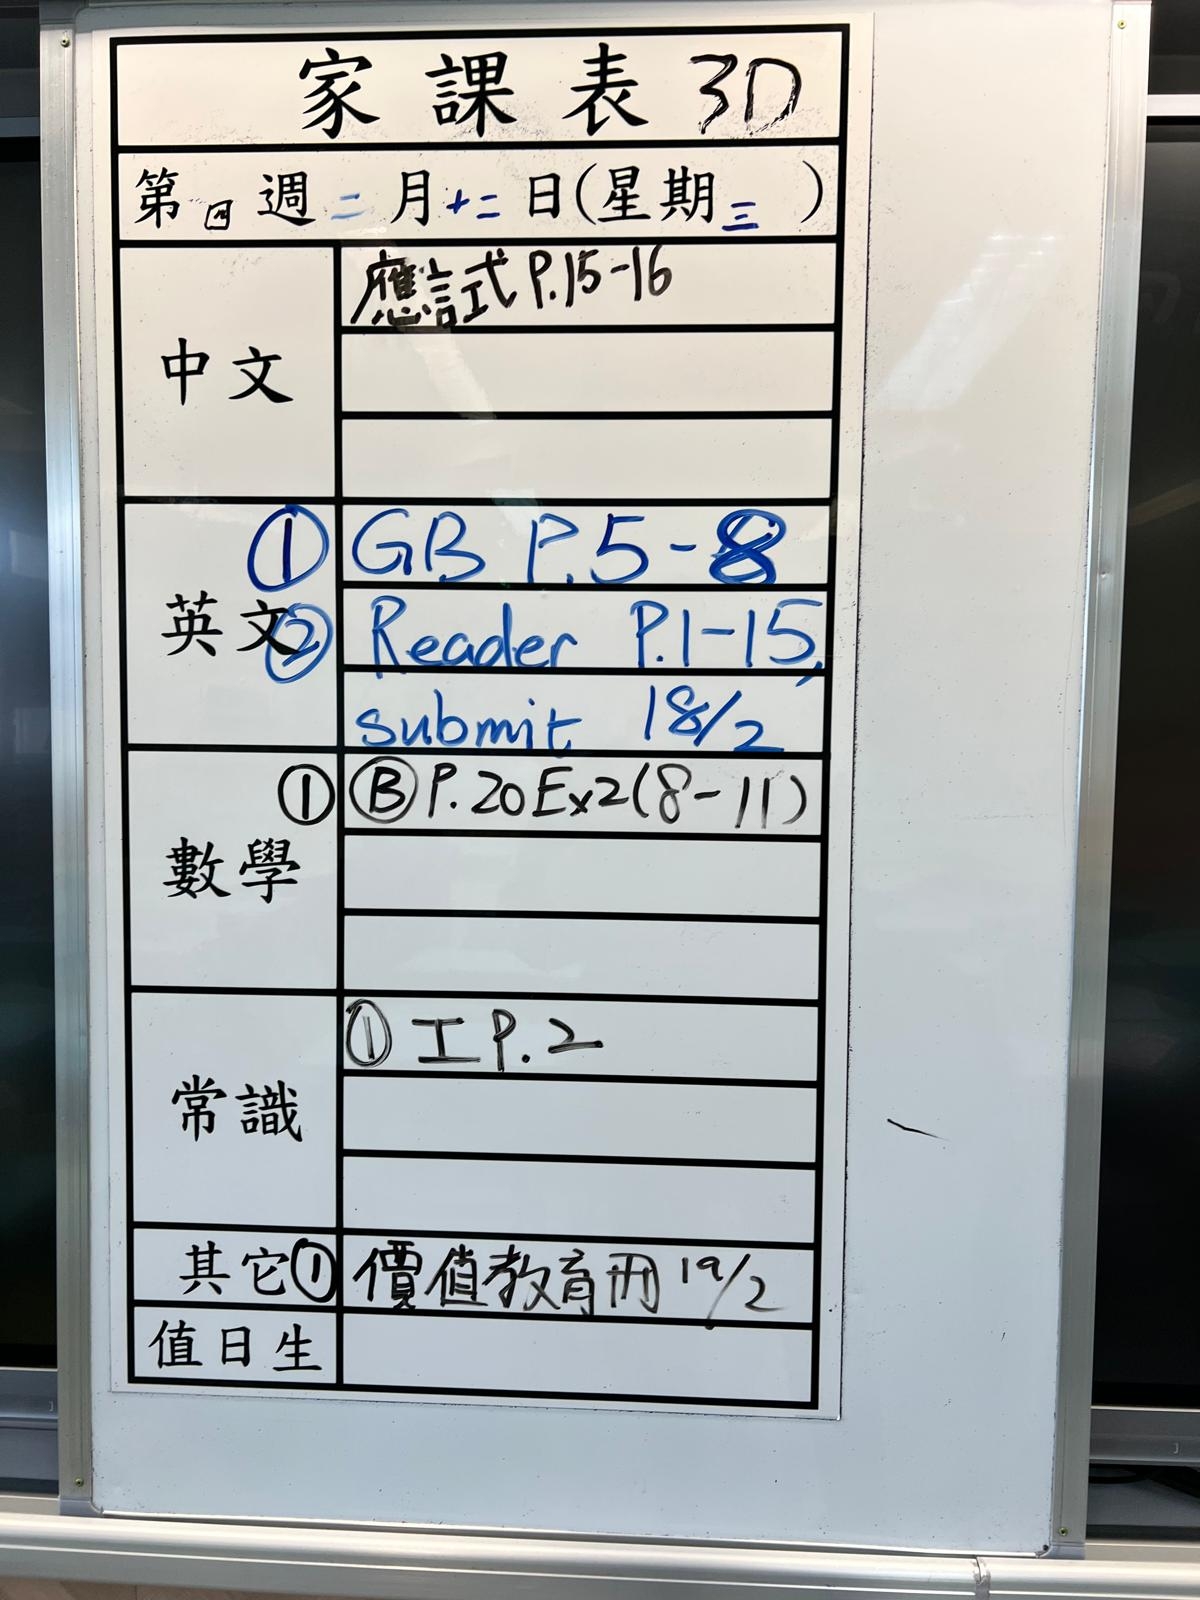 家課表 3D
第四週二月十二日(星期三)
中文
應試 P.15-16
英文
① GB P.5-8
② Reader P.1-15,
submit 18/2
數學
① Ⓑ P.20 Ex2(8-11)
常識
① 工 P.2
其它
① 價值教育冊 19/2
值日生